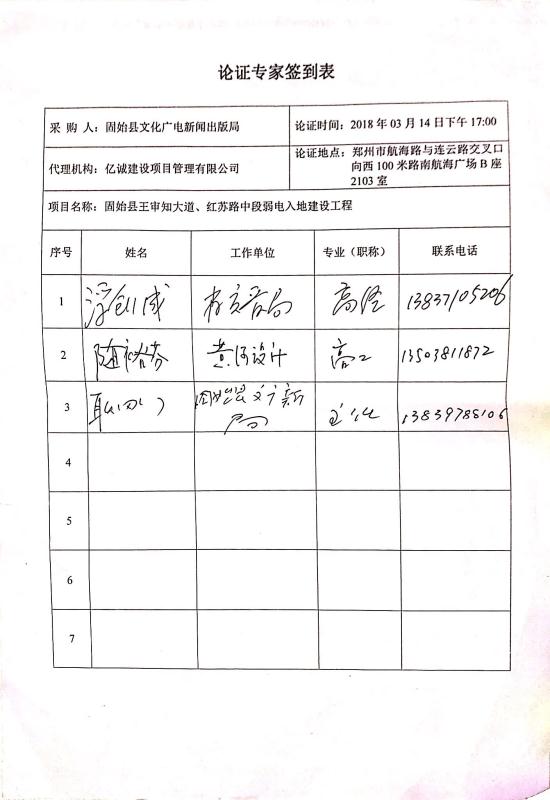 论证专家签到表
采 购 人：固始县文化广电新闻出版局
论证时间：2018 年 03 月 14 日下午 17:00
代理机构：亿诚建设项目管理有限公司
论证地点：郑州市航海路与连云路交叉口
向西 100 米路南航海广场 B 座
2103 室
项目名称：固始县王审知大道、红苏路中段弱电入地建设工程
序号 姓名 工作单位 专业（职称） 联系电话
1 高经 13837105206
2 黄河设计 高工 13503811872
3 固始县文广新 13839788106
局
4
5
6
7